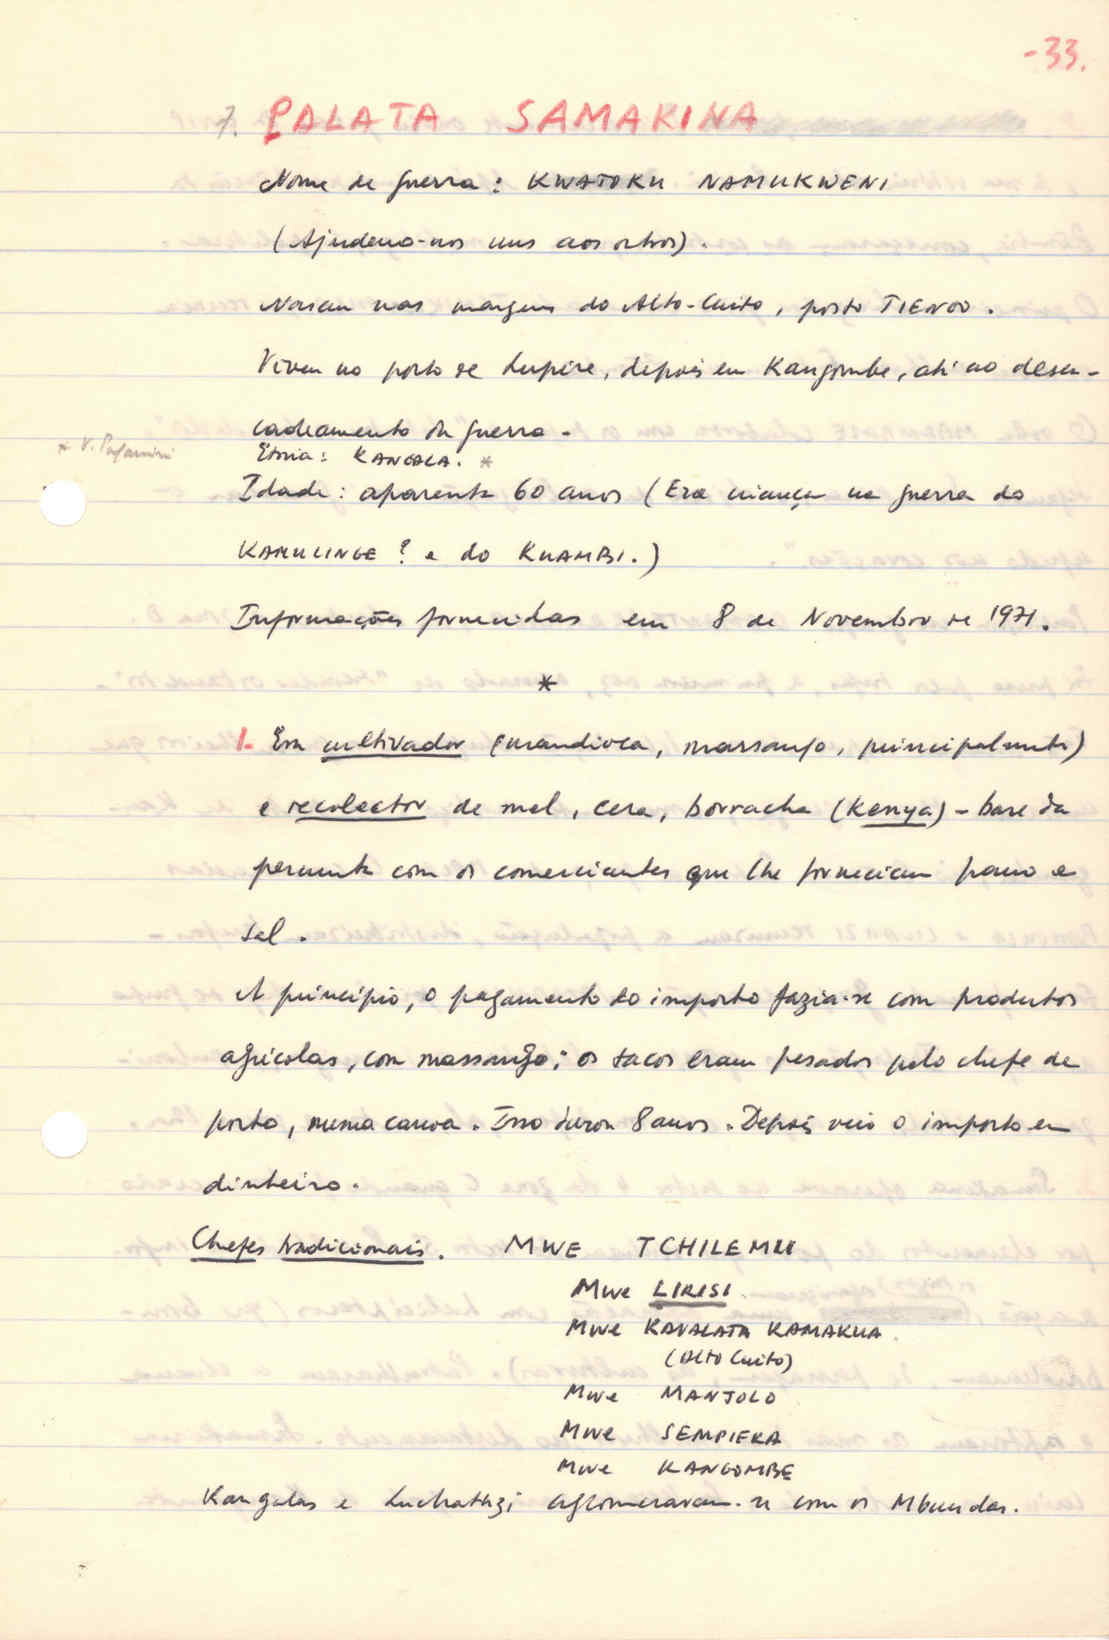 -33.
7. PALATA SAMAKINA
Nome de guerra: KWATOKU NAMUKWENI
(Ajudemo-nos uns aos outros).
Nasceu nas margens do Alto-Cuito, posto TIENGO.
Viveu no posto de Lupire, depois em Kangombe, até ao desen-
cadeamento da guerra.
Etnia: KANGALA. *
* V.
Idade: aparenta 60 anos (Era criança na guerra do
KAMULINGE? e do KUAMBI.)
Informações fornecidas em 8 de Novembro de 1971.
*
1. Era cultivador (mandioca, massango, principalmente)
e recolector de mel, cera, borracha (Kenya) - base da
permuta com os comerciantes que lhe forneciam pano e
sal.
A princípio, o pagamento do imposto fazia-se com produtos
agrícolas, com massango; os sacos eram pesados pelo chefe de
posto, numa canoa. Isso durou 8 anos. Depois veio o imposto em
dinheiro.
Chefes tradicionais. MWE TCHILEMU
Mwe LIRISI.
Mwe KAVALATA KAMAKUA.
(Alto Cuito)
Mwe MANJOLO
Mwe SEMPIEKA
Mwe KANGOMBE
Kangalas e Luchattzi aglomeravam-se com os Mbundas.